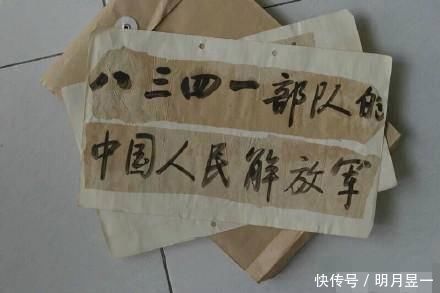 八三四一部队的
中国人民解放军
快传号/明月昱一